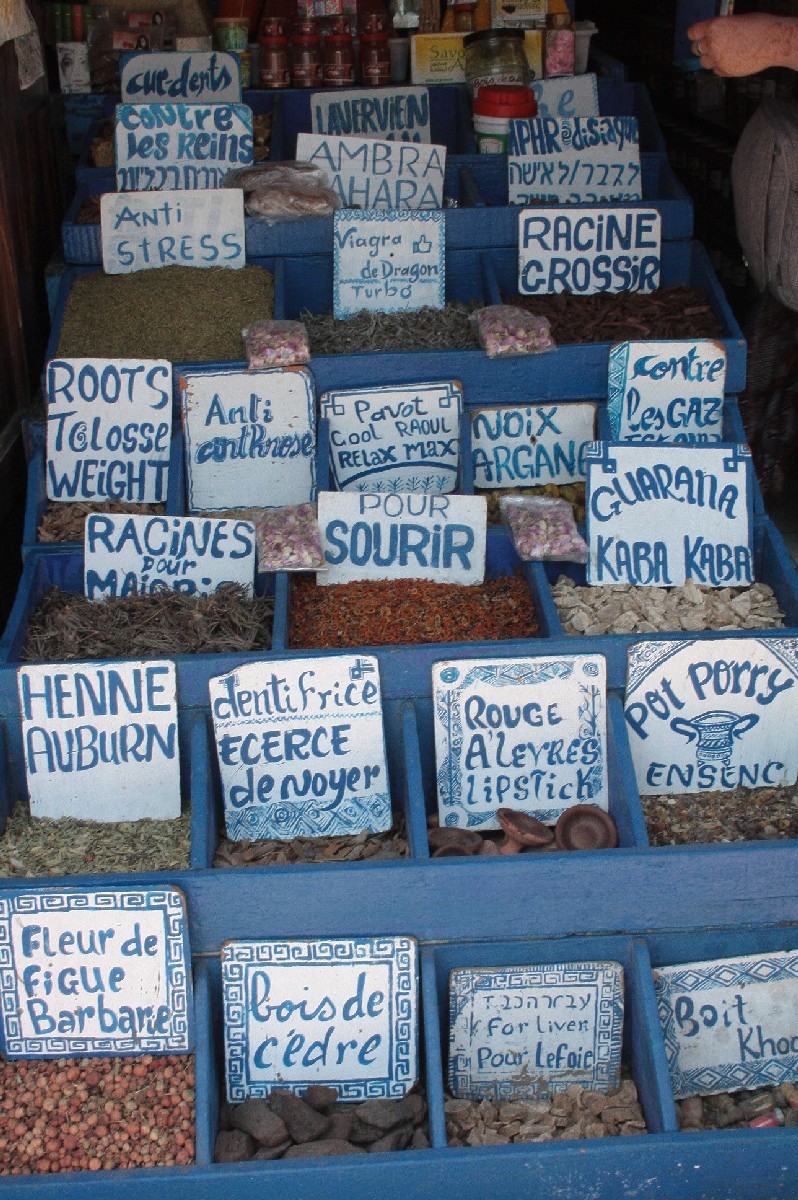 cur-dents
contre
les reins
LAVERVIEN
AMBRA
SAHARA
APHRODiSiAQUE
לגבר/לאישה
ANTi
STRESS
Viagra
de Dragon
Turbo
RACINE
GROSSIR
ROOTS
To Losse
WEIGHT
Anti
Pavot
COOL RAOUL
RELAX MAX
NOiX
ARGANE
contre
Les GAZ
RACINES
POUR
POUR
SOURIR
GUARANA
KABA KABA
HENNE
AUBURN
dentifrice
ECERCE
de Noyer
ROUGE
A'LEVRES
LIPSTICK
POT PORRY
ENSENC
FLeur de
FiGUE
Barbarie
bois de
cédre
For Liver
Pour Lefoie
Boit